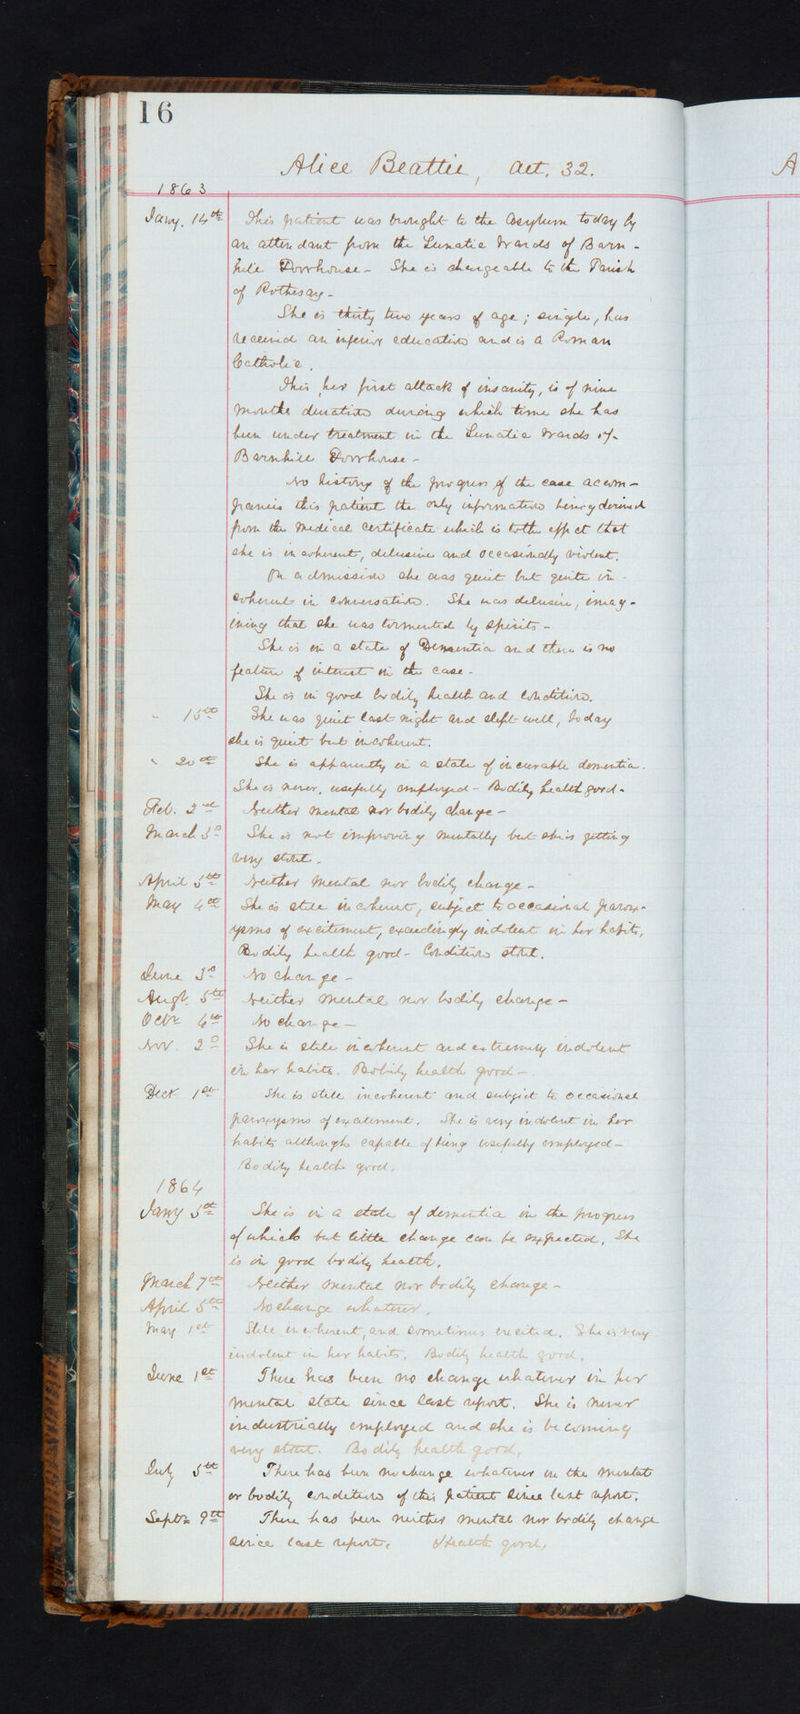 16
Alice Beattie, aet. 32.
1863
Jany. 14th This patient was brought to the Asylum today by
an attendant from the Lunatic Wards of Barn-
hill Poorhouse - She is chargeable to the Parish
of Rothesay -
She is thirty two years of age; single, has
received an inferior education and is a Roman
Catholic.
This, her first attack of insanity, is of nine
months duration during which time she has
been under treatment in the Lunatic Wards of
Barnhill Poorhouse -
No history of the progress of the case accom-
panies this patient the only information being derived
from the medical certificate which is to the effect that
she is incoherent, delusive and occasionally violent.
On admission she was quiet but quite in-
coherent in conversation. She was delusive, imag-
ining that she was tormented by spirits -
She is in a state of Dementia and there is no
feature of interest in the case -
She is in good bodily health and condition.
" 15th She was quiet last night and slept well, today
she is quiet but incoherent.
" 20th She is apparently in a state of incurable dementia.
She is never usefully employed - Bodily health good -
Feb. 2nd Neither mental nor bodily change -
March 3d She is not improving mentally but she is getting
very stout.
April 5th Neither mental nor bodily change -
May 4th She is still incoherent, subject to occasional parox-
ysms of excitement, exceedingly indolent in her habits,
Bodily health good - Condition stout.
June 3d No change -
Augt. 5th Neither mental nor bodily change -
Octr. 6th No change -
Nov. 2d She is still incoherent and extremely indolent
in her habits. Bodily health good -
Decr 1st She is still incoherent and subject to occasional
paroxysms of excitement. She is very indolent in her
habits although capable of being usefully employed -
Bodily health good.
1864
Jany 5th She is in a state of dementia in the progress
of which but little change can be expected. She
is in good bodily health.
March 7th Neither mental nor bodily change -
April 5th No change whatever.
May 1st Still incoherent, and sometimes excited. She is very
indolent in her habits. Bodily health good.
June 1st There has been no change whatever in her
mental state since last report. She is never
industrially employed and she is becoming
very stout. Bodily health good.
July 5th There has been no change whatever in the mental
or bodily condition of this patient since last report.
Septr 9th There has been neither mental nor bodily change
since last report. Health good.
A